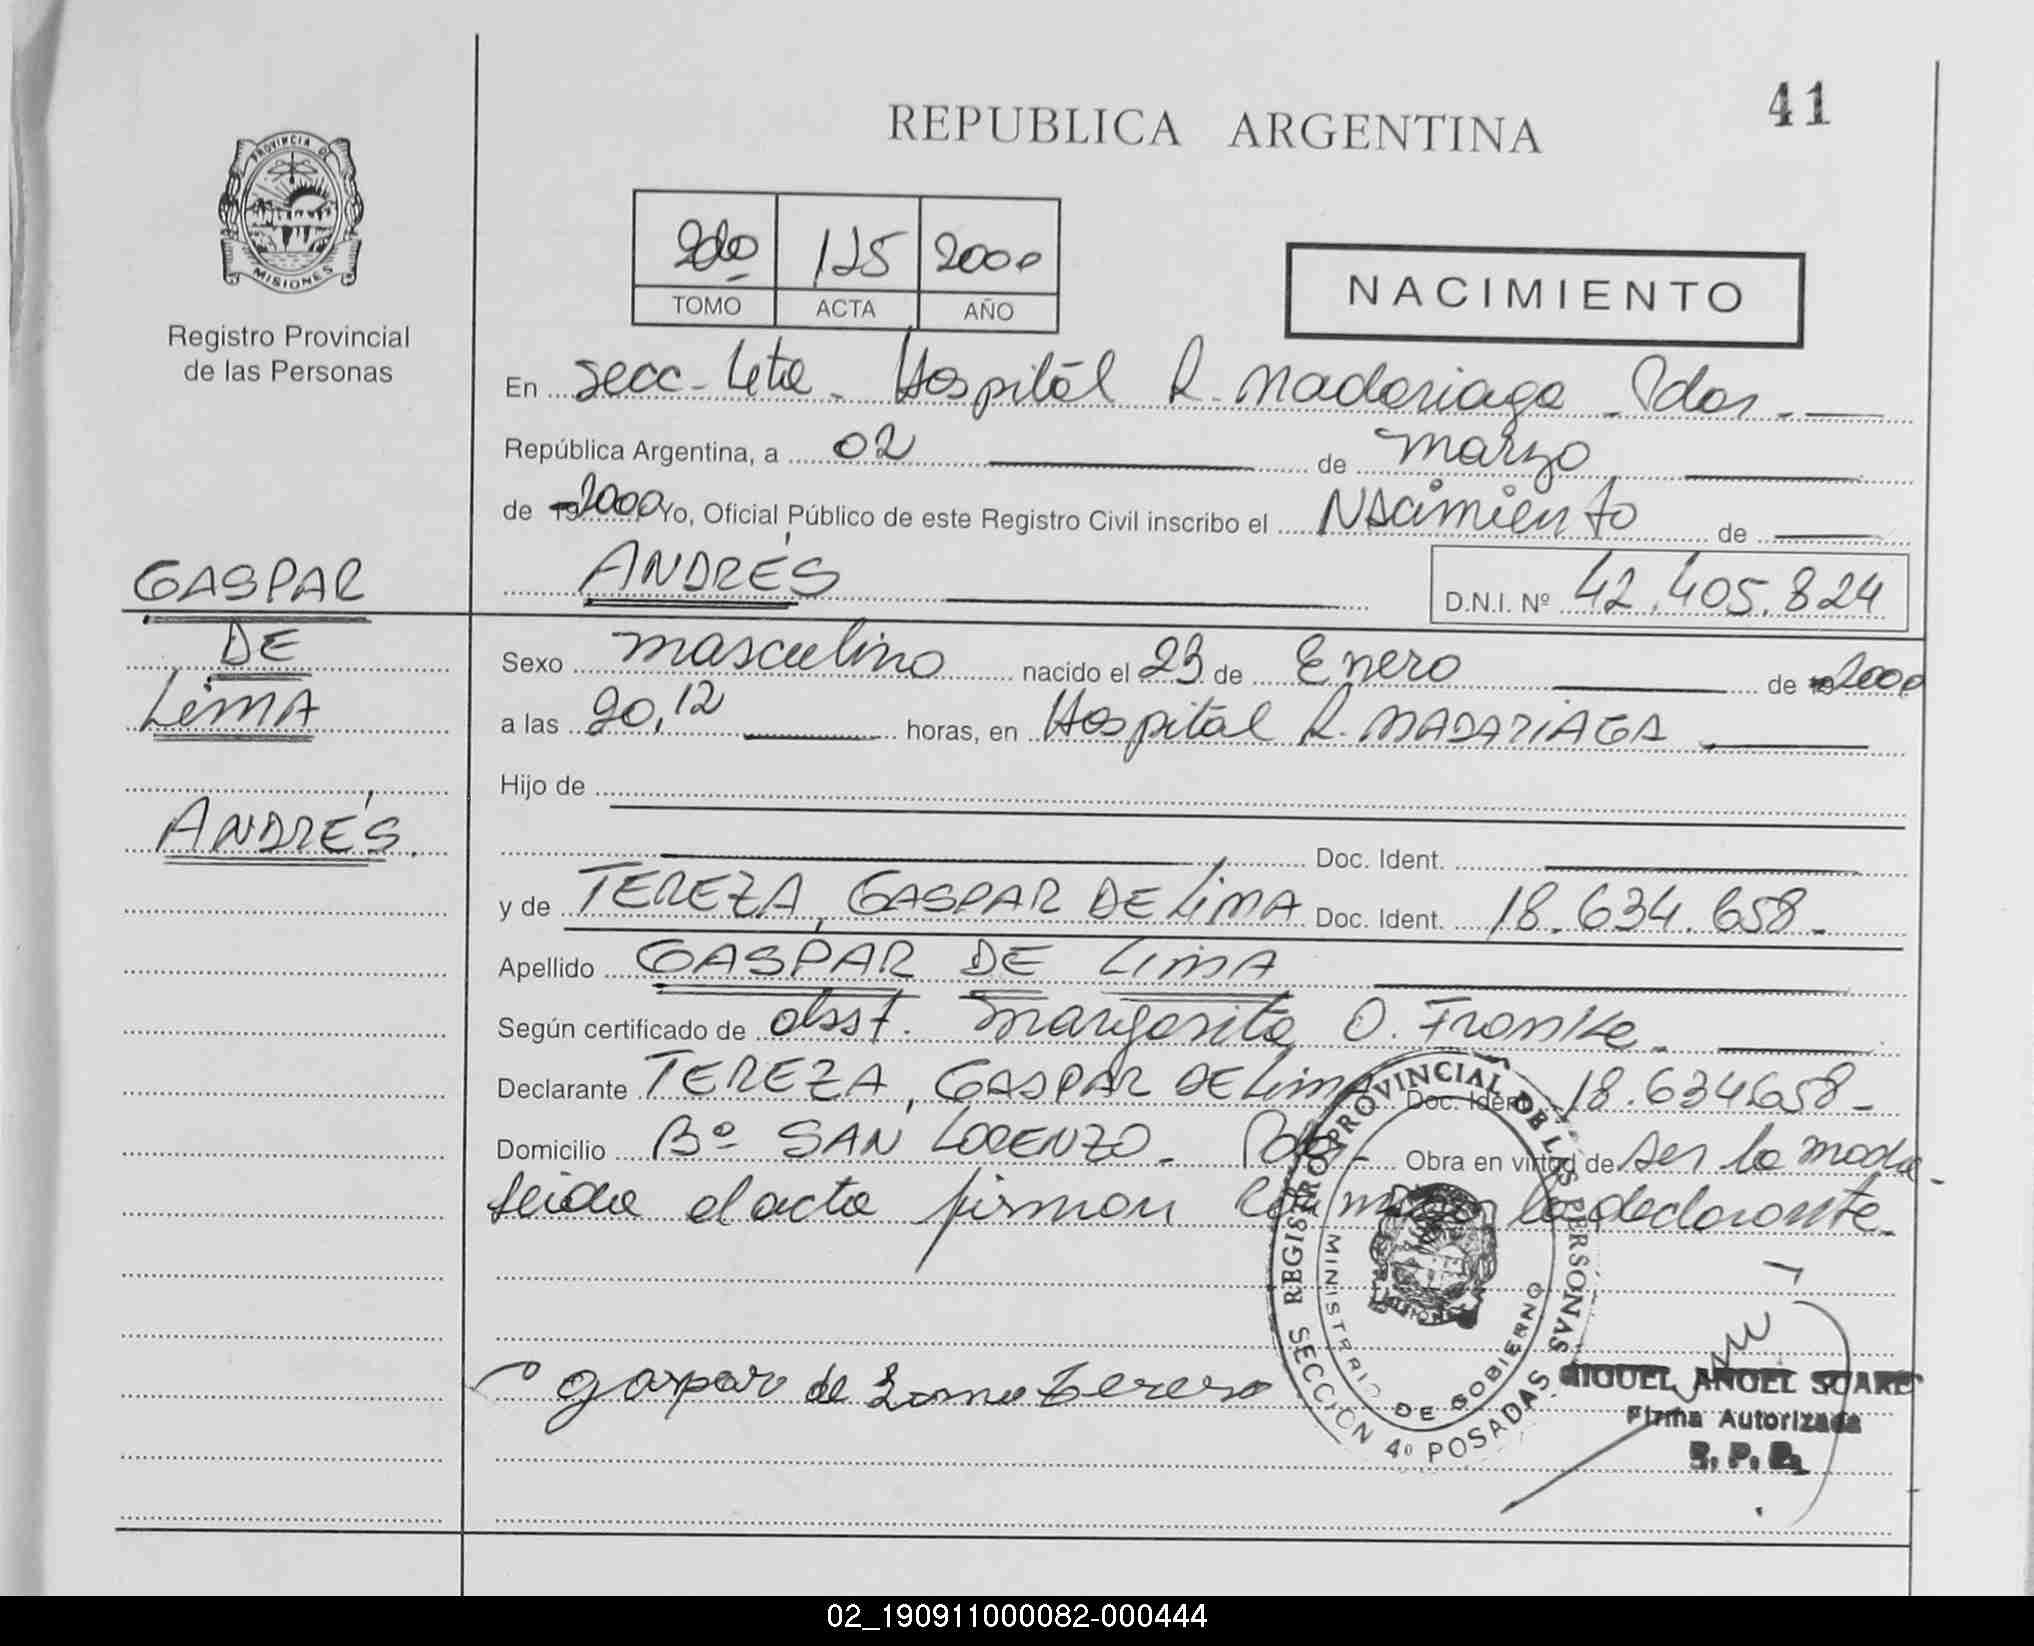 41
REPUBLICA ARGENTINA
PROVINCIA DE
MISIONES
Registro Provincial
de las Personas
2do 125 2000
TOMO ACTA AÑO
NACIMIENTO
En Secc. 4ta. Hospital R. Madariaga - Pdas. -
República Argentina, a 02 de marzo
de 2000 Yo, Oficial Público de este Registro Civil inscribo el Nacimiento de
ANDRÉS
D.N.I. Nº 42.405.824
GASPAR
DE
LIMA
ANDRÉS.
Sexo masculino nacido el 23 de Enero de 2000
a las 20,12 horas, en Hospital R. MADARIAGA
Hijo de
Doc. Ident.
y de TEREZA, GASPAR DE LIMA Doc. Ident. 18.634.658.-
Apellido GASPAR DE LIMA
Según certificado de obst. Margarita O. Franke.
Declarante TEREZA, GASPAR DE LIMA Doc. Ident. 18.634.658-
Domicilio Bº SAN LORENZO - Pdas - Obra en virtud de ser la madre -
leida el acta firman la declarante.
gaspar de Lima Tereza
REGISTRO PROVINCIAL DE LAS PERSONAS
MINISTERIO DE GOBIERNO
SECCION 4º POSADAS
MIGUEL ANGEL SUAREZ
Firma Autorizada
R. P. P.
02_190911000082-000444